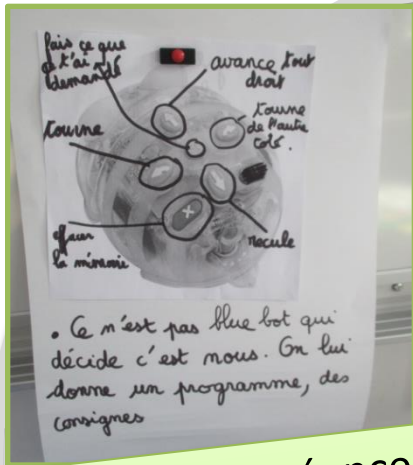 fais ce que
je t'ai
demandé
avance tout
droit
tourne
de l'autre
coté.
tourne
effacer
la mémoire
recule
. Ce n'est pas blue bot qui
décide c'est nous. On lui
donne un programme, des
consignes